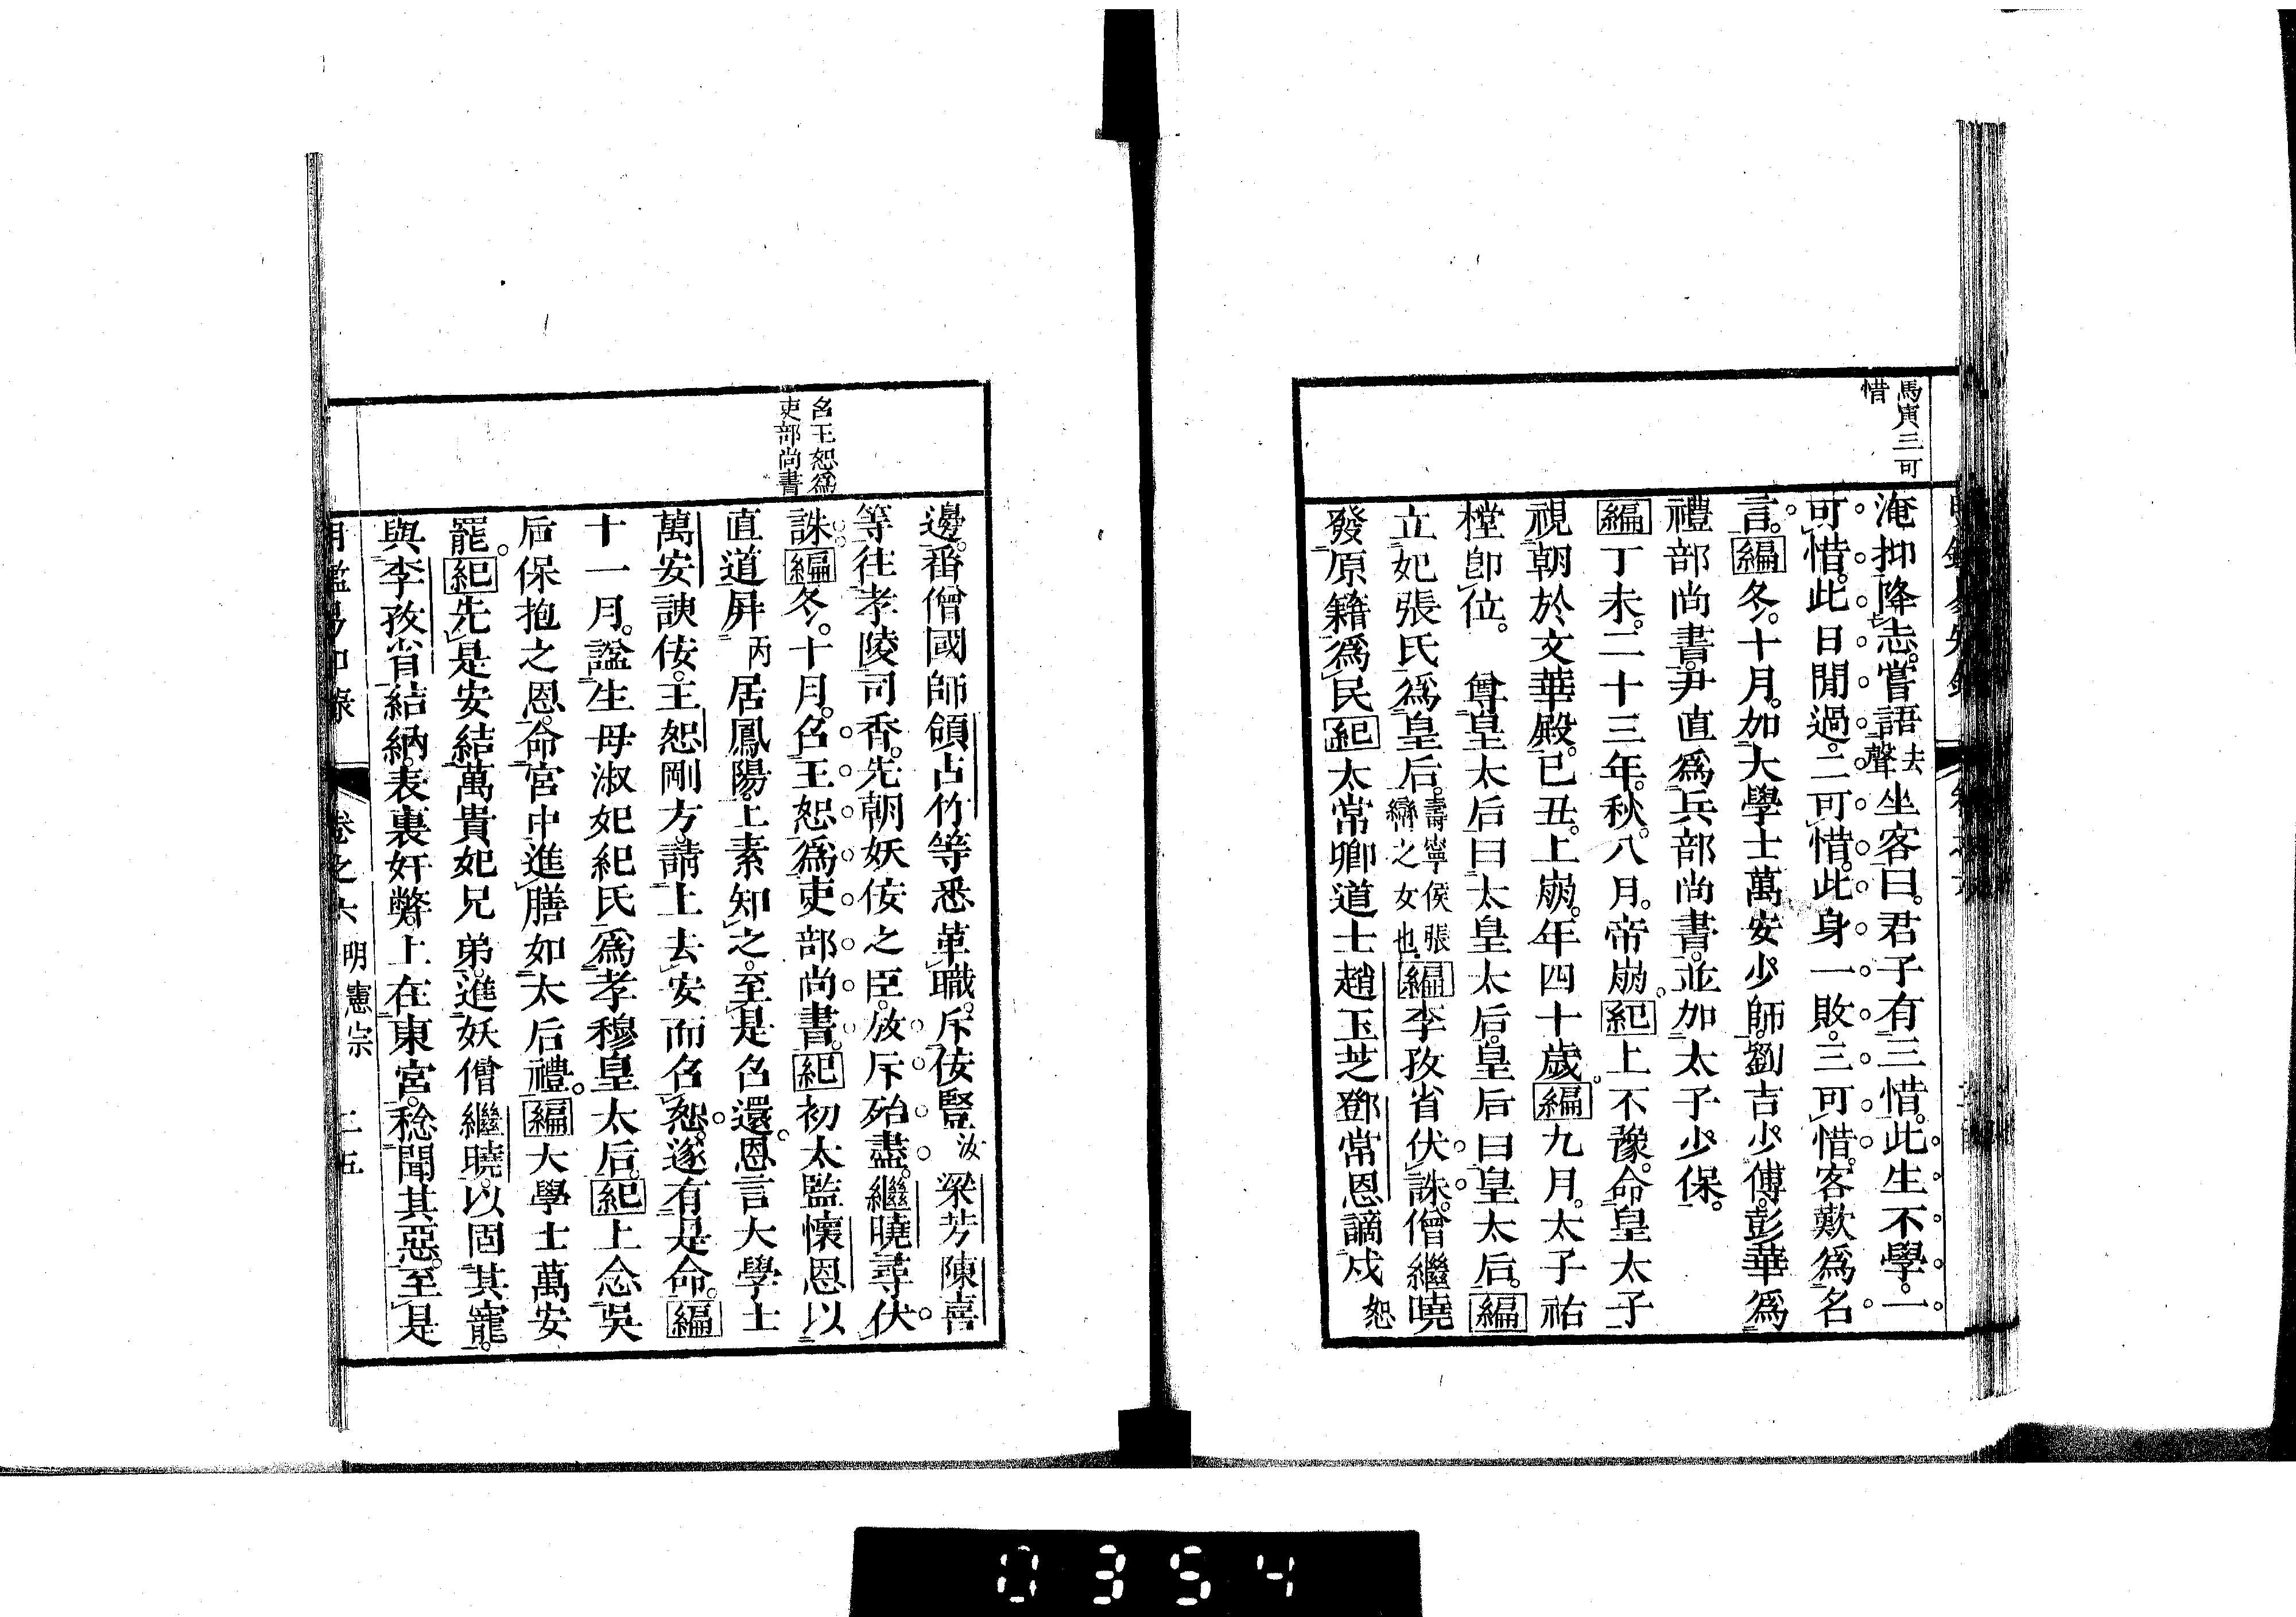 馬寅三可
惜
淹抑降志。嘗語去聲坐客曰。君子有三惜。此生不學。一
可惜。此日閒過。二可惜。此身一敗。三可惜。客歎爲名
言。編冬。十月。加大學士萬安少師。劉吉少傅。彭華爲
禮部尚書。尹直爲兵部尚書。並加太子少保。
編丁未。二十三年。秋。八月。帝崩。紀上不豫。命皇太子
視朝於文華殿。已丑。上崩。年四十歲。編九月。太子祐
樘卽位。 尊皇太后曰太皇太后。皇后曰皇太后。編
立妃張氏爲皇后。壽寧侯張巒之女也。編李孜省伏誅。僧繼曉
發原籍爲民紀太常卿道士趙玉芝鄧常恩謫戍恕
邊。番僧國師領占竹等悉革職。斥佞豎汝梁芳陳喜
等往孝陵司香。先朝妖佞之臣。放斥殆盡。繼曉尋伏
誅。編冬。十月。召王恕爲吏部尚書。紀初太監懷恩以
直道屏丙居鳳陽。上素知之。至是召還。恩言大學士
萬安諛佞。王恕剛方。請上去安而召恕。遂有是命。編
十一月。諡生母淑妃紀氏爲孝穆皇太后。紀上念吳
后保抱之恩。命宮中進膳如太后禮。編大學士萬安
罷。紀先是安結萬貴妃兄弟。進妖僧繼曉。以固其寵。
與李孜省結納。表裏奸弊。上在東宮。稔聞其惡。至是
召王恕爲
吏部尚書
卷之六 明憲宗 二五
0354